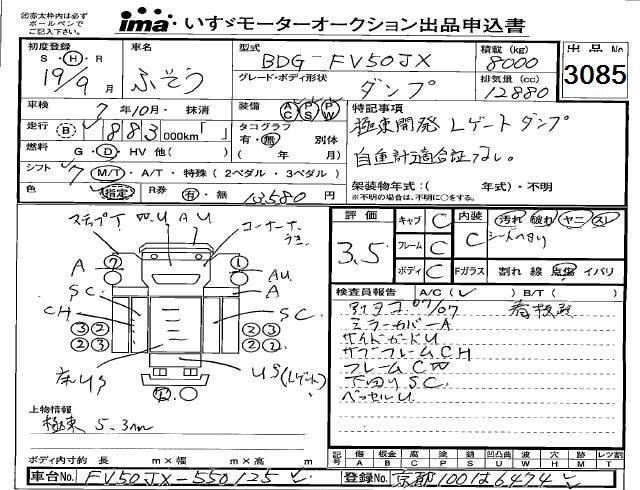 ㊟赤太枠内は必ず
ボールペンで
ご記入下さい。
ima いすゞモーターオークション出品申込書
初度登録 車名 型式 BDG-FV50JX 積載 (kg) 8000 出品 No
S・H・R 19/9月 ふそう グレード・ボディ形状 ダンプ 排気量 (cc) 12880 3085
車検 7年10月・抹消 装備 AC PS PW 特記事項
走行 B 883 000km「 」 タコグラフ 有・無 別体 極東開発 Lゲートダンプ
燃料 G・D・HV 他( ) ( 年 月) 自重計適合証なし。
シフト 7 M/T・A/T・特殊 (2ペダル・3ペダル)
架装物年式:( 年式)・不明
色 指定 R券 有・無 13,580円 ※不明の場合は、不明に○をする。
ステップT 凹U AU コーナー
評価 3.5 キャブ C 内装 C 汚れ 破れ ヤニ スレ
フレーム C シートヘタリ
ボディ C Fガラス 割れ 線 点傷 イバリ
A ⑦ ① AU
A
SC CH SC
③② ②③
②③ ②②
床US US(Lゲート)
検査員報告 A/C( ✓ ) B/T( )
07/07
ミラーカバーA
サイドガードU
サブフレームCH
フレームCW
下回りSC
ベッセルU
上物情報
極東 5.3m
ボディ内寸約 長 m×幅 m×高 m
記号 傷 板金 腐 塗 錆 凹凸曲 波 穴 跡 レツ割
A B C P S U W H M T
車台No. FV50JX-550125 登録No. 京都100は6474